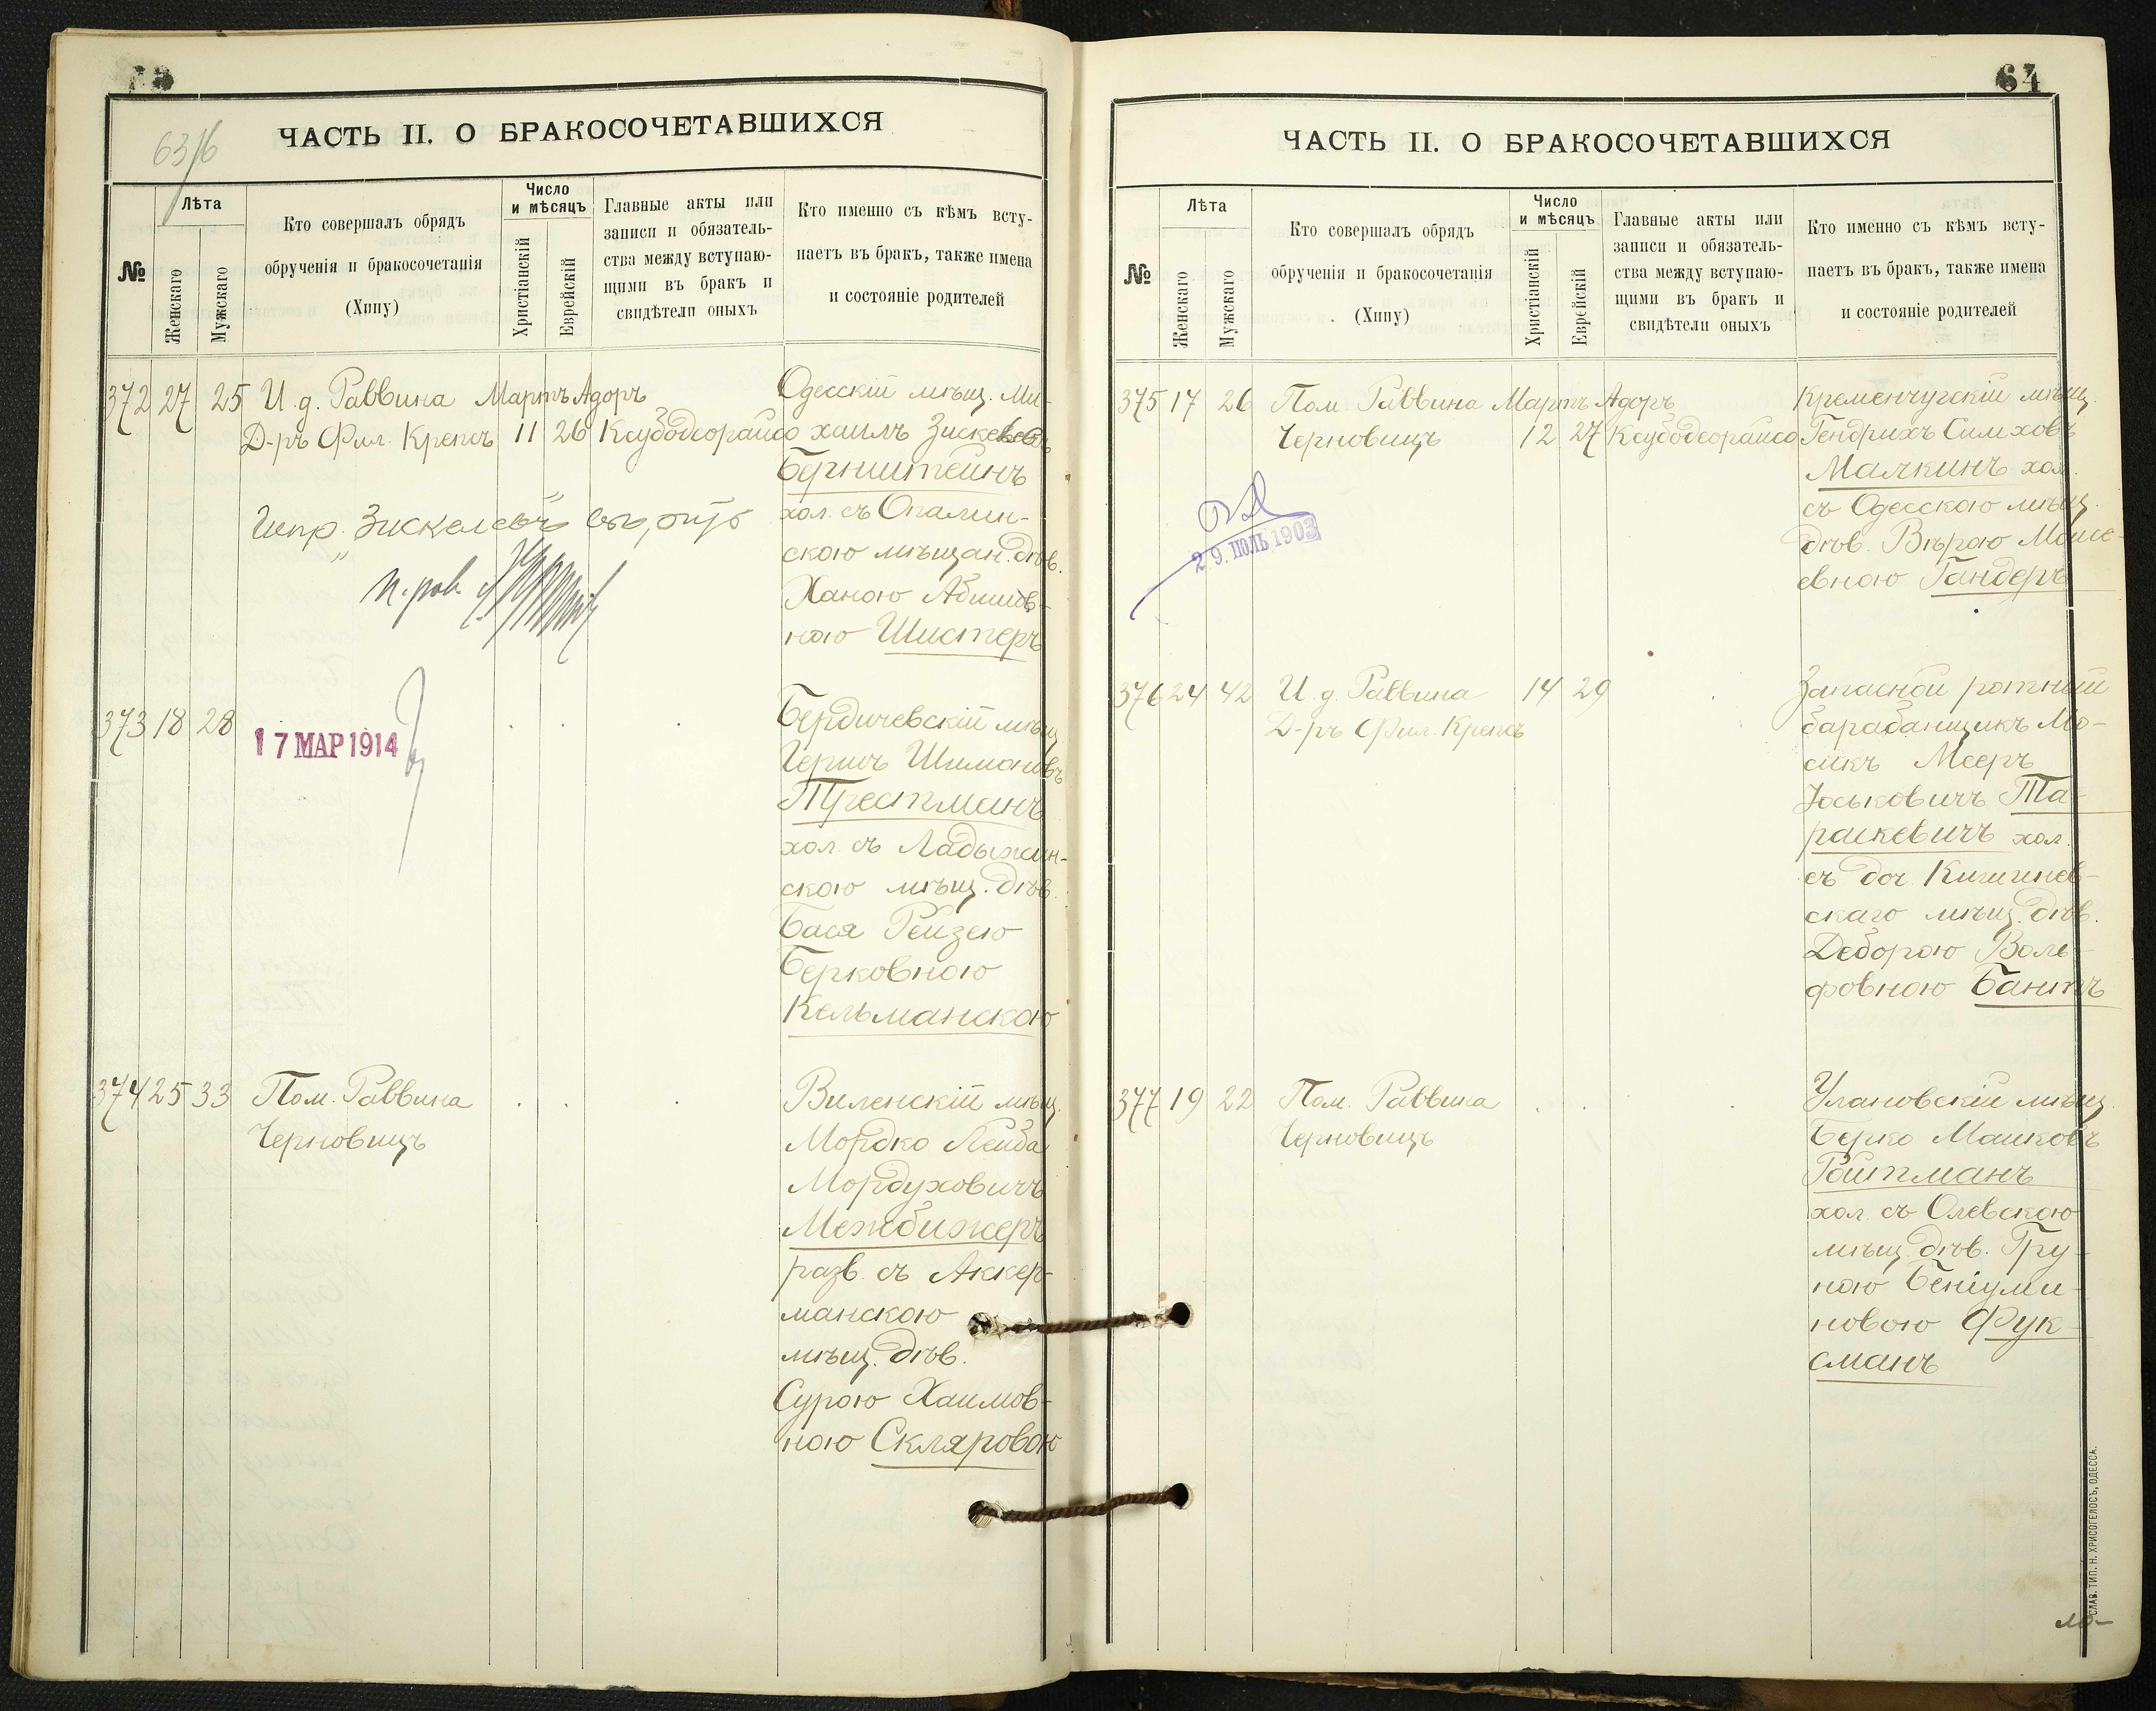 63/16
ЧАСТЬ II. О БРАКОСОЧЕТАВШИХСЯ
№
Лѣта
Женскаго
Мужскаго
Кто совершалъ обрядъ
обрученія и бракосочетанія
(Хипу)
Число
и мѣсяцъ
Христіанскій
Еврейскій
Главные акты или
записи и обязатель-
ства между вступаю-
щими въ бракъ и
свидѣтели оныхъ
Кто именно съ кѣмъ всту-
паетъ въ бракъ, также имена
и состояніе родителей
372 27 25 И. д. Раввина Мартъ Адоръ
Д-ръ Фил. Крепсъ 11 26 Ксубодеорайсо
Одесскій мѣщ. Ми-
хаилъ Зискелевъ
Бернштейнъ
хол. съ Опалин-
скою мѣщан. дѣв.
Ханою Абшиов-
ною Шистеръ
Испр. "Зискелевъ"
373 18 28
17 МАР 1914
Бердичевскій мѣщ
Гершъ Шимоновъ
Трестманъ
хол. съ Ладыжин-
скою мѣщ. дѣв.
Бася Рейзею
Берковною
Кельманскою
374 25 33 Пом. Раввина
Черновицъ
Виленскій мѣщ.
Мордко Лейба
Мордуховичъ
Межбижеръ
разв. съ Аккер-
манскою
мѣщ. дѣв.
Сурою Хаимов-
ною Скляровою
64
ЧАСТЬ II. О БРАКОСОЧЕТАВШИХСЯ
№
Лѣта
Женскаго
Мужскаго
Кто совершалъ обрядъ
обрученія и бракосочетанія
(Хипу)
Число
и мѣсяцъ
Христіанскій
Еврейскій
Главные акты или
записи и обязатель-
ства между вступаю-
щими въ бракъ и
свидѣтели оныхъ
Кто именно съ кѣмъ всту-
паетъ въ бракъ, также имена
и состояніе родителей
375 17 26 Пом Раввина Мартъ Адоръ
Черновицъ 12 27 Ксубодеорайсо
29. ІЮЛЬ 1903
Кременчугскій мѣщ
Гендрихъ Симховъ
Малкинъ хол.
съ Одесскою мѣщ.
дѣв. Вѣрою Моисе-
евною Гандеръ
376 24 42 И. д. Раввина 14 29
Д-ръ Фил. Крепсъ
Запасной ротный
барабанщикъ Мо-
сикъ Мееръ
Іоськовичъ Та-
раскевичъ хол.
съ доч. Кишинев-
скаго мѣщ. дѣв.
Деборою Воль-
фовною Бантъ
377 19 22 Пом. Раввина
Черновицъ
Улановскій мѣщ.
Берко Маиковъ
Ройтманъ
хол. съ Олевскою
мѣщ. дѣв. Гру-
ною Беніуми-
новою Фук-
сманъ
СЛАВ. ТИП. Н. ХРИСОГЕЛОСЪ, ОДЕССА.